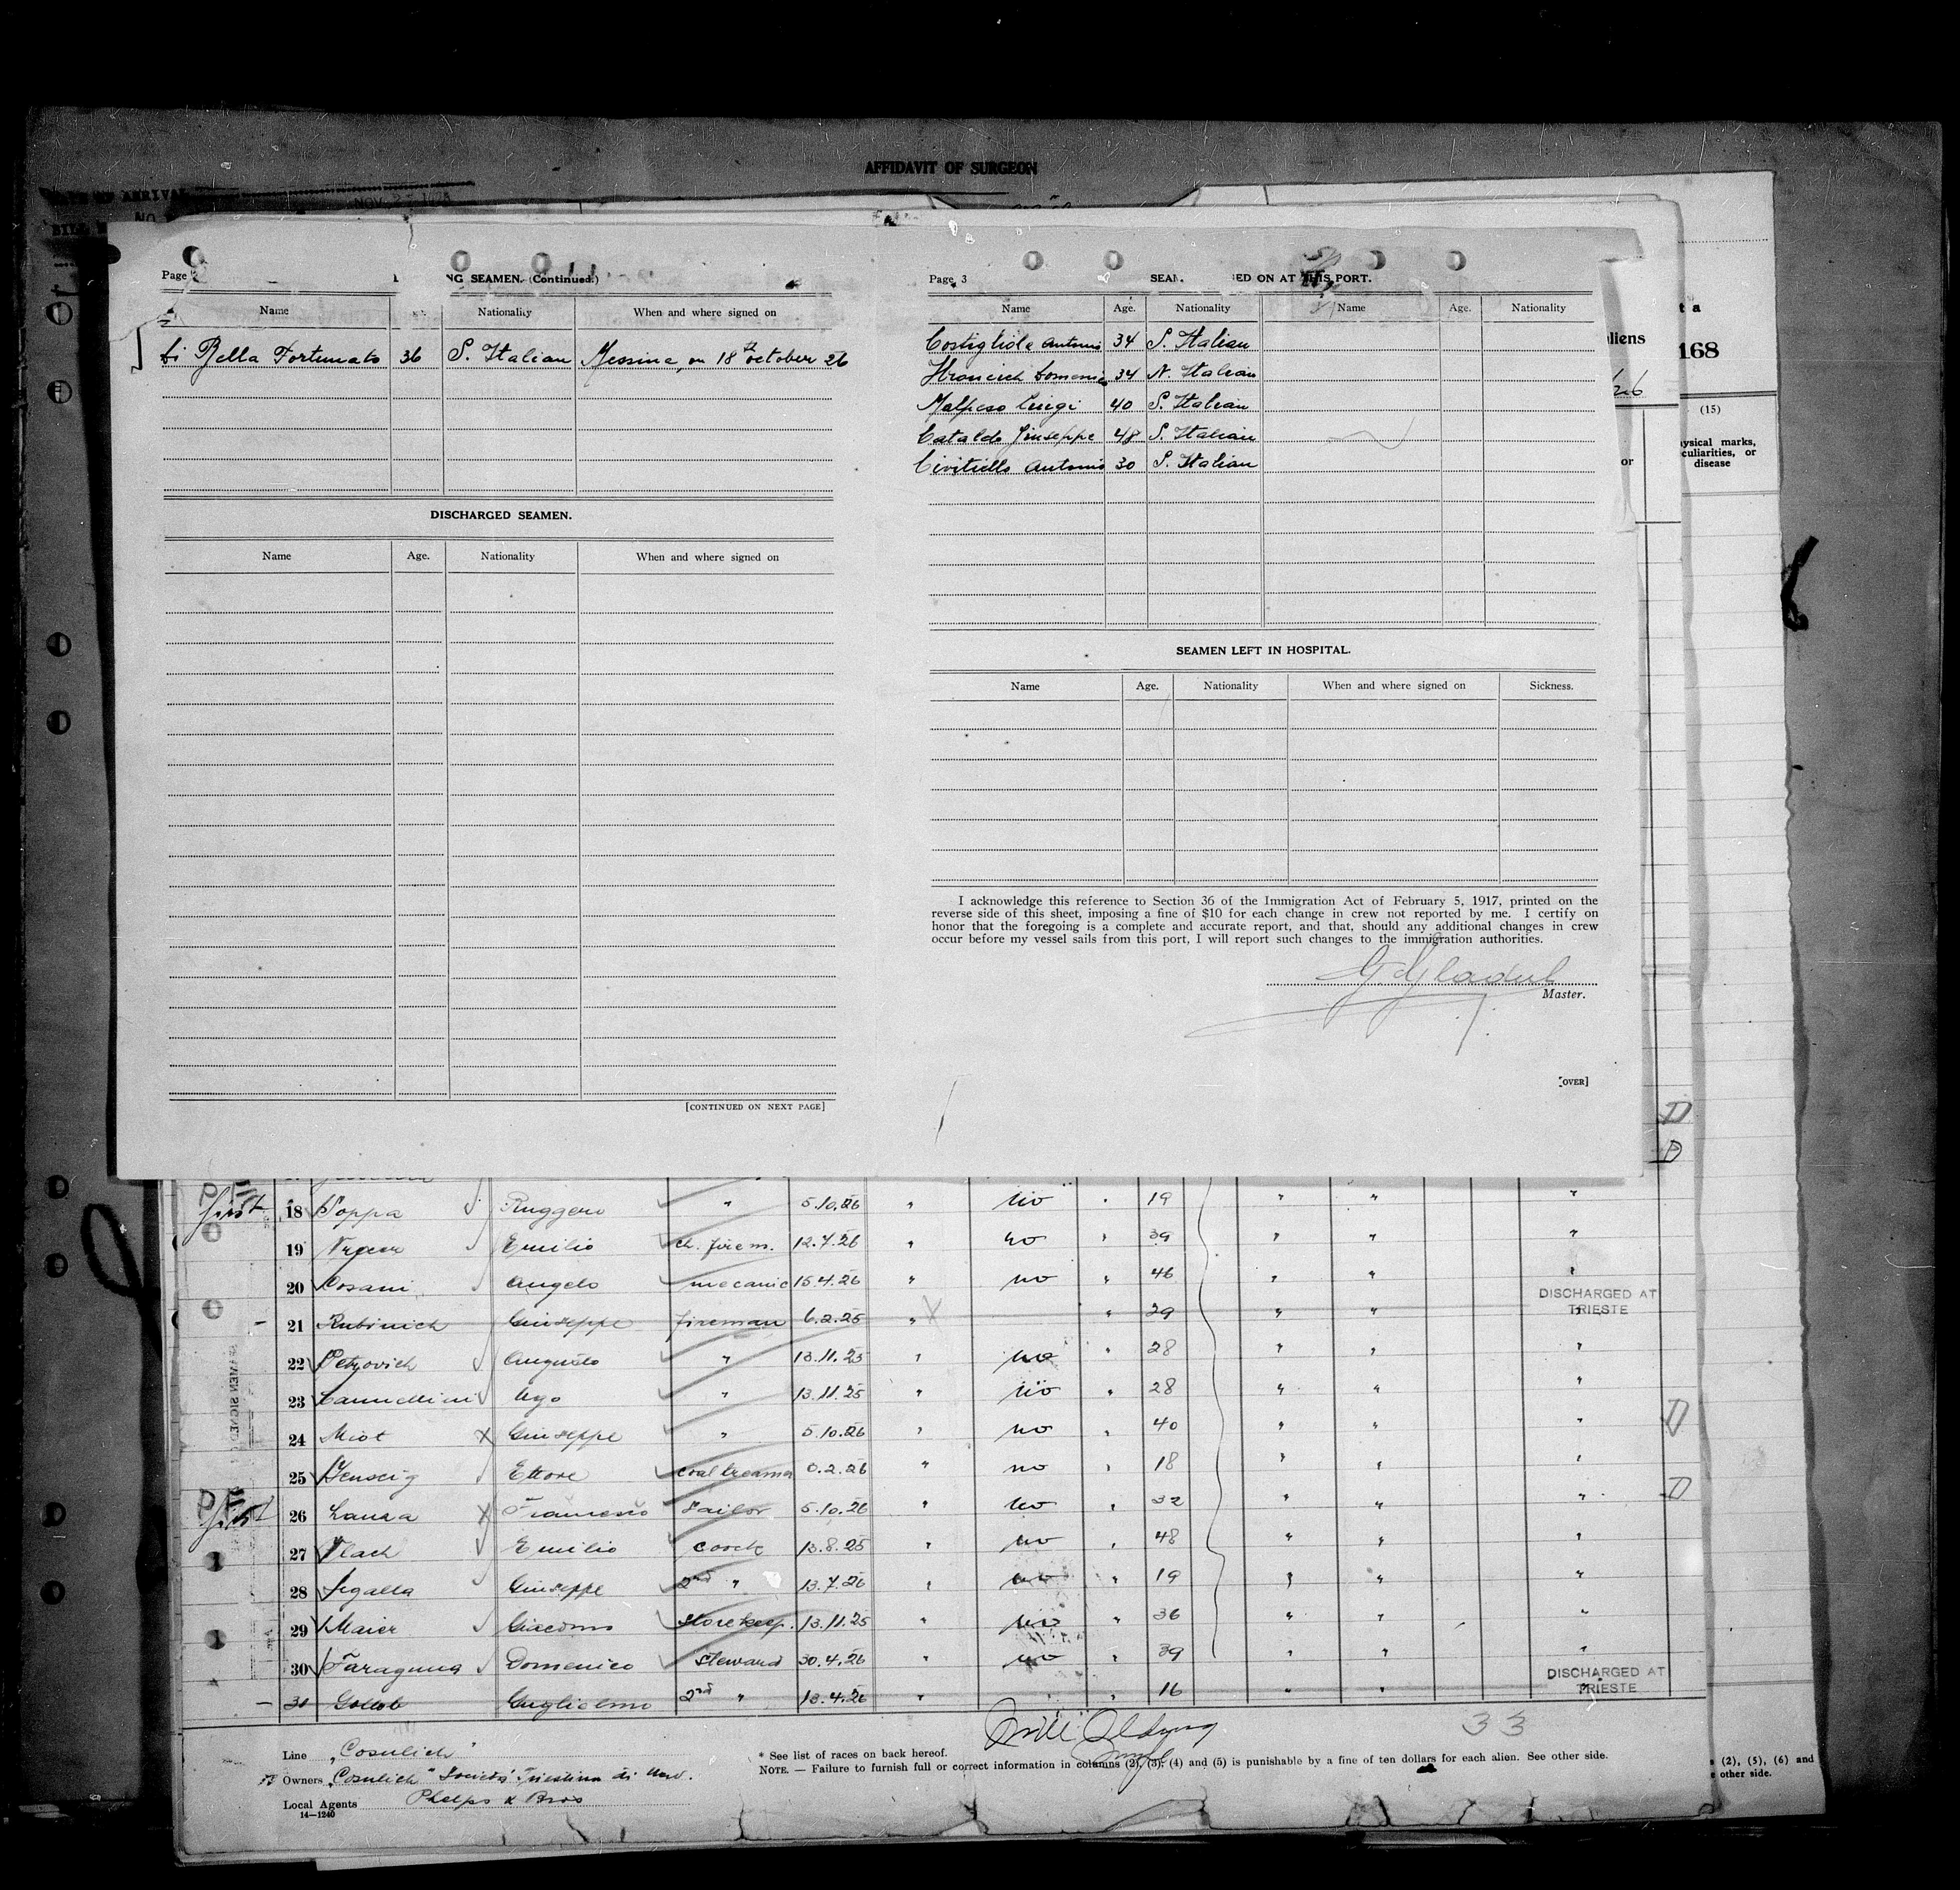 AFFIDAVIT OF SURGEON
OF ARRIVAL
NOV
Page
NG SEAMEN. (Continued)
Name Nationality When and where signed on
Di Bella Fortunato 36 S. Italian Messina, on 18th october 26
DISCHARGED SEAMEN.
Name Age. Nationality When and where signed on
[CONTINUED ON NEXT PAGE]
Page 3
SEAM ED ON AT THIS PORT.
Name Age. Nationality Name Age. Nationality
Costigliola Antonio 34 S. Italian
34 N. Italian
Luigi 40 S. Italian
Cataldo Giuseppe 48 S. Italian
Civitiello Antonio 30 S. Italian
SEAMEN LEFT IN HOSPITAL.
Name Age. Nationality When and where signed on Sickness.
I acknowledge this reference to Section 36 of the Immigration Act of February 5, 1917, printed on the
reverse side of this sheet, imposing a fine of $10 for each change in crew not reported by me. I certify on
honor that the foregoing is a complete and accurate report, and that, should any additional changes in crew
occur before my vessel sails from this port, I will report such changes to the immigration authorities.
Master.
[OVER]
t a
liens
168
26
(15)
ysical marks,
culiarities, or
disease
or
D
D
first 18 Poppa Ruggero " 5.10.26 " no " 19 " " "
19 Emilio ch. firem. 12.7.26 " no " 39 " " "
20 Cosani Angelo mecanic 15.4.26 " no " 46 " " "
DISCHARGED AT
TRIESTE
21 Rubinich Giuseppe fireman 6.2.25 " X " 29 " " "
22 Petrovich Augusto " 13.11.25 " no " 28 " " "
23 Cannellini Ugo " 13.11.25 " no " 28 " " "
24 Miot X Giuseppe " 5.10.26 " no " 40 " " " D
25 Ettore 0.2.26 " no " 18 " " "
26 X Francesco Sailor 5.10.26 " no " 32 " " " D
27 Vlach Emilio coock 13.8.25 " no " 48 " " "
28 Segalla Giuseppe 2nd " 13.7.26 " no " 19 " " "
29 Maier Giacomo Storekeep. 13.11.25 " no " 36 " " "
30 Faraguna Domenico Steward 30.4.26 " no " 39 " " "
DISCHARGED AT
TRIESTE
30 Golob Guglielmo 2nd " 13.4.26 " " 16 " " "
33
Line "Cosulich"
Owners "Cosulich" Società Triestina di Nav.
Local Agents Phelps & Bros
14—1240
* See list of races on back hereof.
NOTE. — Failure to furnish full or correct information in columns (2), (3), (4) and (5) is punishable by a fine of ten dollars for each alien. See other side.
(2), (5), (6) and
other side.